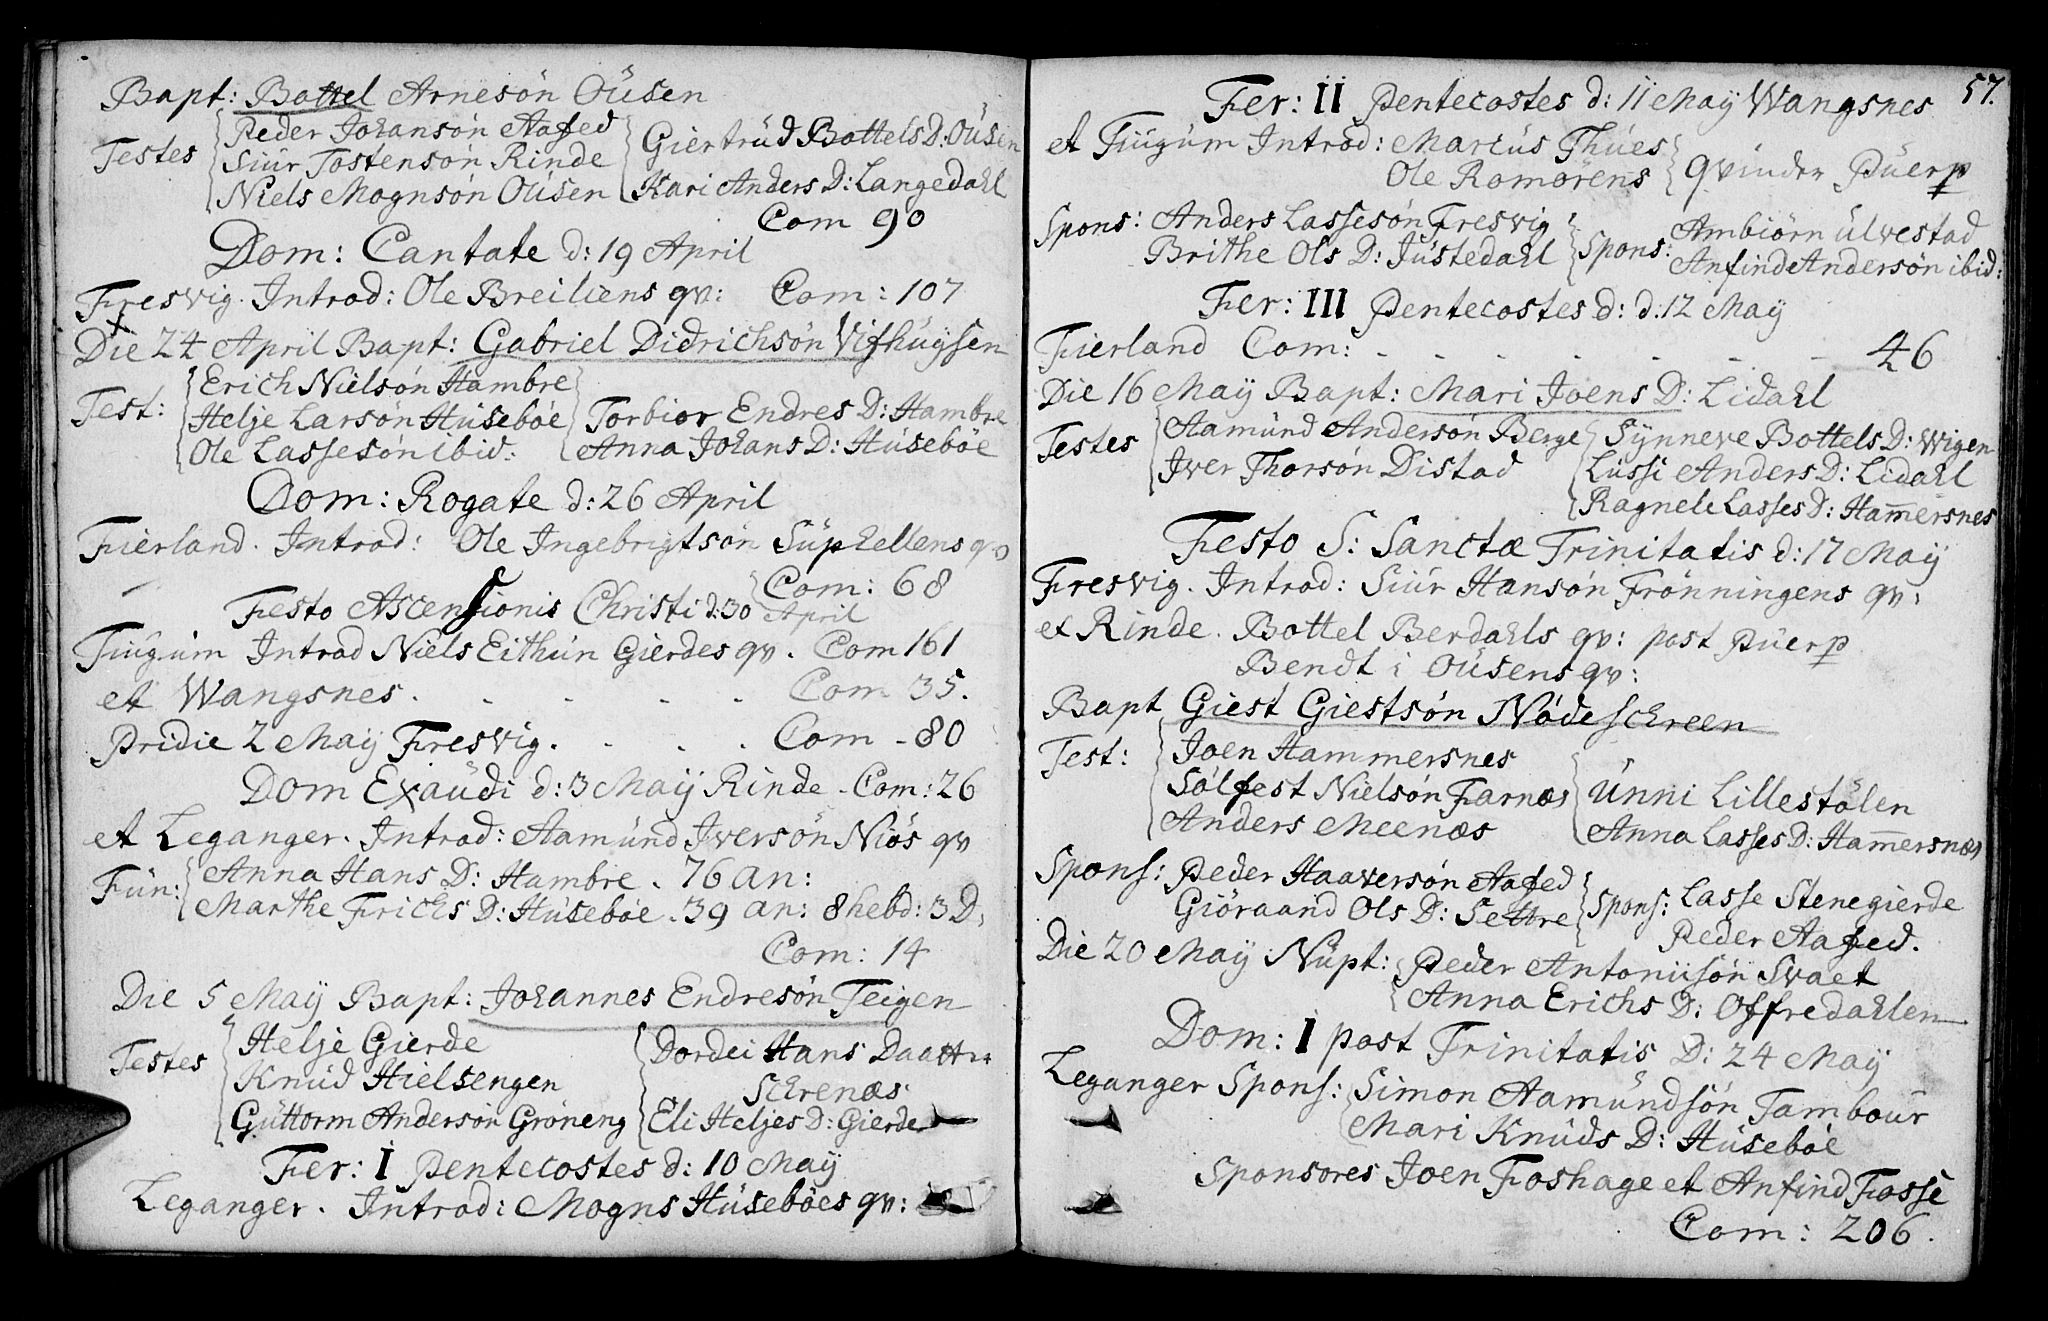 Bapt: Bottel Arnesön Oüsen
Testes Peder Johansön Aafed
Siür Tostensön Rinde
Niels Mognsön Oüsen
Giertrüd Bottels D: Oüsen
Kari Anders D: Langedahl
Com 90
Dom: Cantate d: 19 April
Fresvig. Introd: Ole Breiliens qv: Com: 107
Die 24 April Bapt: Gabriel Didrichsön Vifhuÿsen
Test: Erich Nielsön Hambre
Helje Larsön Hüseböe
Ole Lassesön ibid:
Torbior Endres D: Hambre
Anna Johans D: Hüseböe
Dom: Rogate d: 26 April
Fierland. Introd: Ole Ingebrigtsön Süphellens qv
Com: 68
Festo Ascensionis Christi d: 30 April
Tiugüm Introd Niels Eithün Gierdes qv. Com 161
et Wangsnes. Com 35.
Pridie 2 Maÿ Fresvig. Com - 80
Dom Exaüdi d: 3 Maÿ Rinde - Com: 26
et Leganger. Introd: Aamünd Iversön Niös qv
Fün: Anna Hans D: Hambre. 76 an:
Marthe Frichs D: Hüseböe. 39 an: 8 hebd: 3 D.
Com: 14
Die 5 Maÿ Bapt: Johannes Endresön Teigen
Testes Helje Gierde
Knüd Hielsengen
Güttorm Andersön Gröneng
Dordei Hans Daatter
Schrenæs
Eli Heljes D: Gierde
Fer: I Pentecostes d: 10 Maÿ
Leganger. Introd: Mogns Hüseböes qv:
57.
Fer: II Pentecostes d: 11 Maÿ Wangsnes
et Tiugüm Introd: Marcüs Thües
Ole Romörens
qvinder Püerp
Spons: Anders Lassesön Fresvig
Brithe Ols D: Jüstedahl
Spons: Ambiörn Ulvestad
Anfind Andersön ibid:
Fer: III Pentecostes d: d: 12 Maÿ
Fierland Com: - - - - - - - 46
Die 16 Maÿ Bapt: Mari Joens D: Lidahl
Testes Aamünd Andersön Berge
Iver Thorsön Distad
Sÿnneve Bottels D: Wigen
Lüssi Anders D: Lidahl
Ragnele Lasses D: Ham̅ersnes
Festo S: Sanctæ Trinitatis d: 17 Maÿ
Fresvig. Introd: Siür Hansön Frönningens qv:
et Rinde. Bottel Berdahls qv: post Püerp
Bendt i Oüsens qv:
Bapt Giest Giestsön Nödeschreen
Test: Joen Hammersnes
Sölfest Nielsön Farnæs
Anders Meenæs
Ünni Lillestölen
Anna Lasses D: Ham̅ersnæs
Spons: Peder Haaversön Aafed
Giöraand Ols D: Settre
Spons: Lasse Stenegierde
Peder Aafed.
Die 20 Maÿ Nüpt: Peder Antoniisön Svaet
Anna Erichs D: Offredahlen
Dom: I post Trinitatis D: 24 Maÿ
Leganger Spons: Simon Aamündsön Tambour
Mari Knüds D: Hüseböe
Sponsores Joen Foshage et Anfind Fosse
Com: 206.